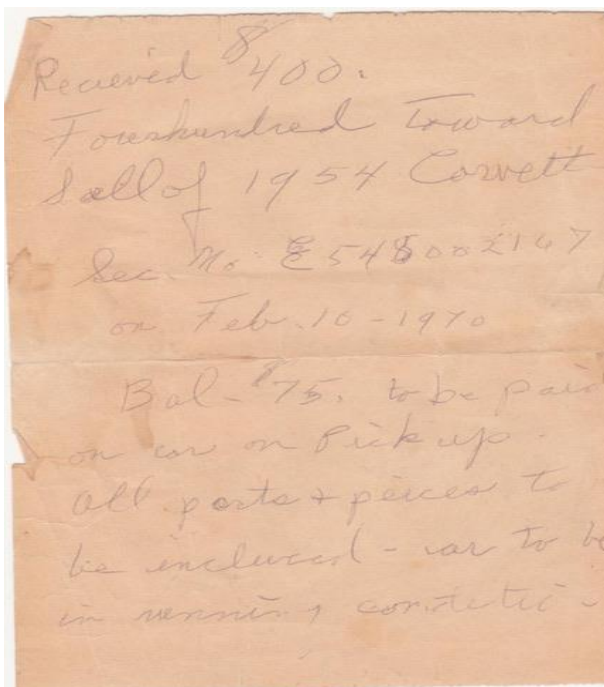 Recieved $400.
Fourhundred Toward
Sell of 1954 Corvett
No. E54S002167
on Feb. 10 - 1970
Bal - $75. to be paid
on car on Pick up.
all parts + peices to
be included - car to be
in running